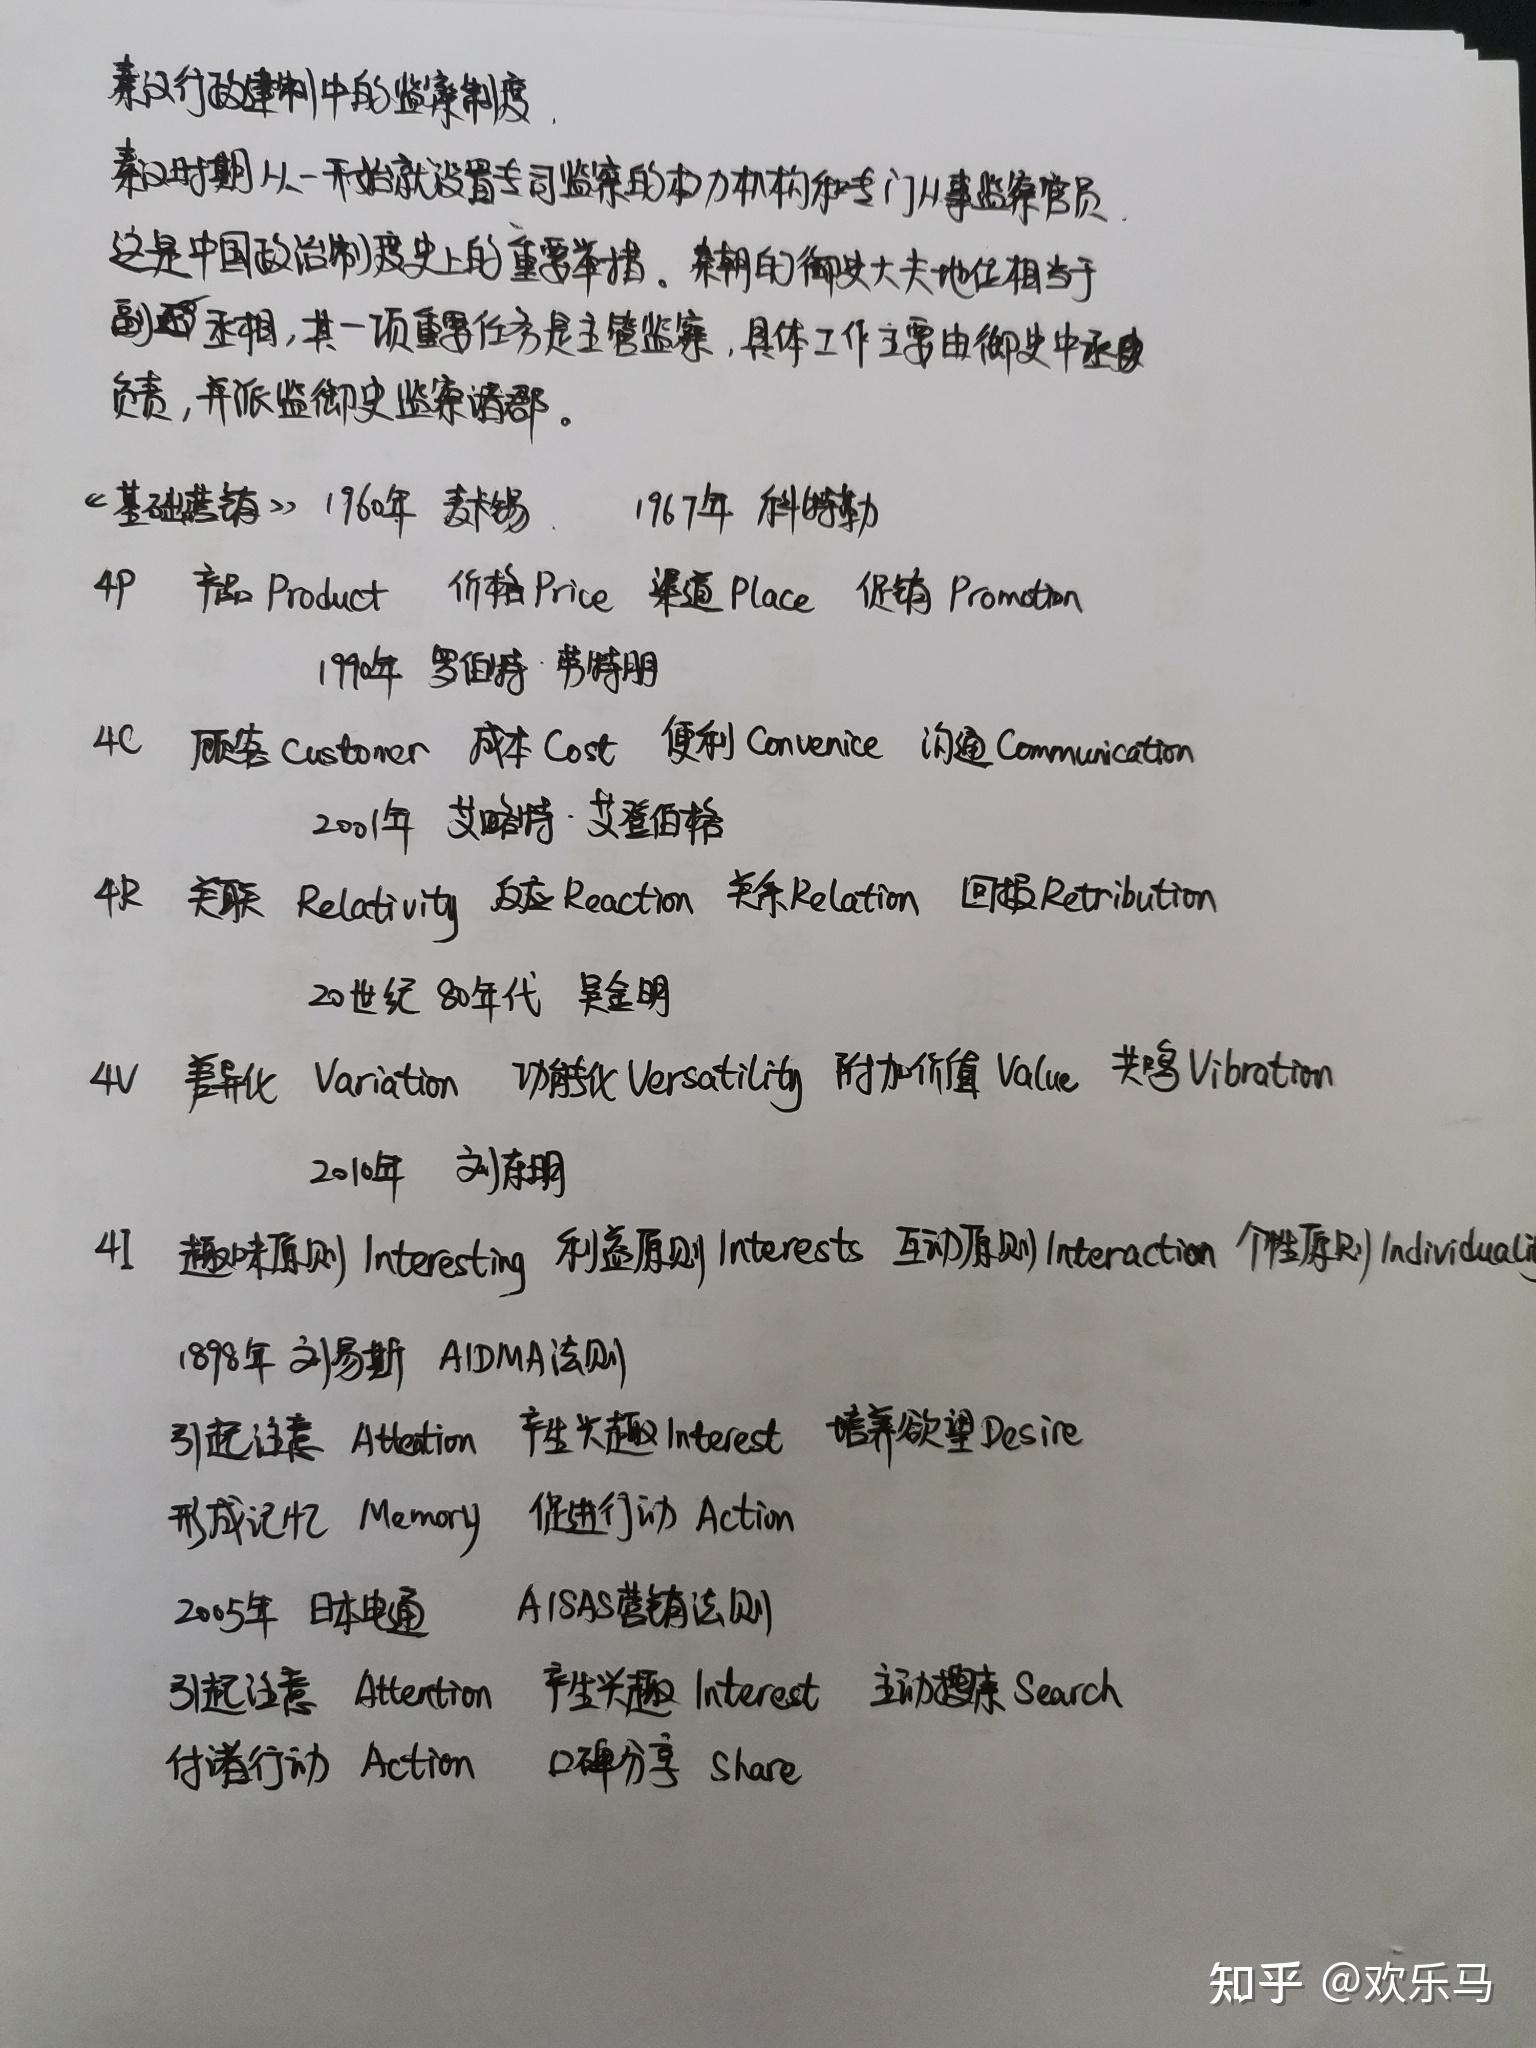 秦汉行政建制中的监察制度.
秦汉时期从一开始就设置专司监察的权力机构和专门从事监察官员.
这是中国政治制度史上的重要举措。秦朝的御史大夫地位相当于
副丞相,其一项重要任务是主管监察,具体工作主要由御史中丞
负责,并派监御史监察诸郡。
《基础营销》 1960年 麦卡锡. 1967年 科特勒
4P 产品 Product 价格 Price 渠道 Place 促销 Promotion
1990年 罗伯特·劳特朋
4C 顾客 Customer 成本 Cost 便利 Convenice 沟通 Communication
2001年 艾略特·艾登伯格
4R 关联 Relativity 反应 Reaction 关系 Relation 回报 Retribution
20世纪80年代 吴金明
4V 差异化 Variation 功能化 Versatility 附加价值 Value 共鸣 Vibration
2010年 刘东明
4I 趣味原则 Interesting 利益原则 Interests 互动原则 Interaction 个性原则 Individualit
1898年 刘易斯 AIDMA法则
引起注意 Attention 产生兴趣 Interest 培养欲望 Desire
形成记忆 Memory 促进行动 Action
2005年 日本电通 AISAS营销法则
引起注意 Attention 产生兴趣 Interest 主动搜索 Search
付诸行动 Action 口碑分享 Share
知乎 @欢乐马